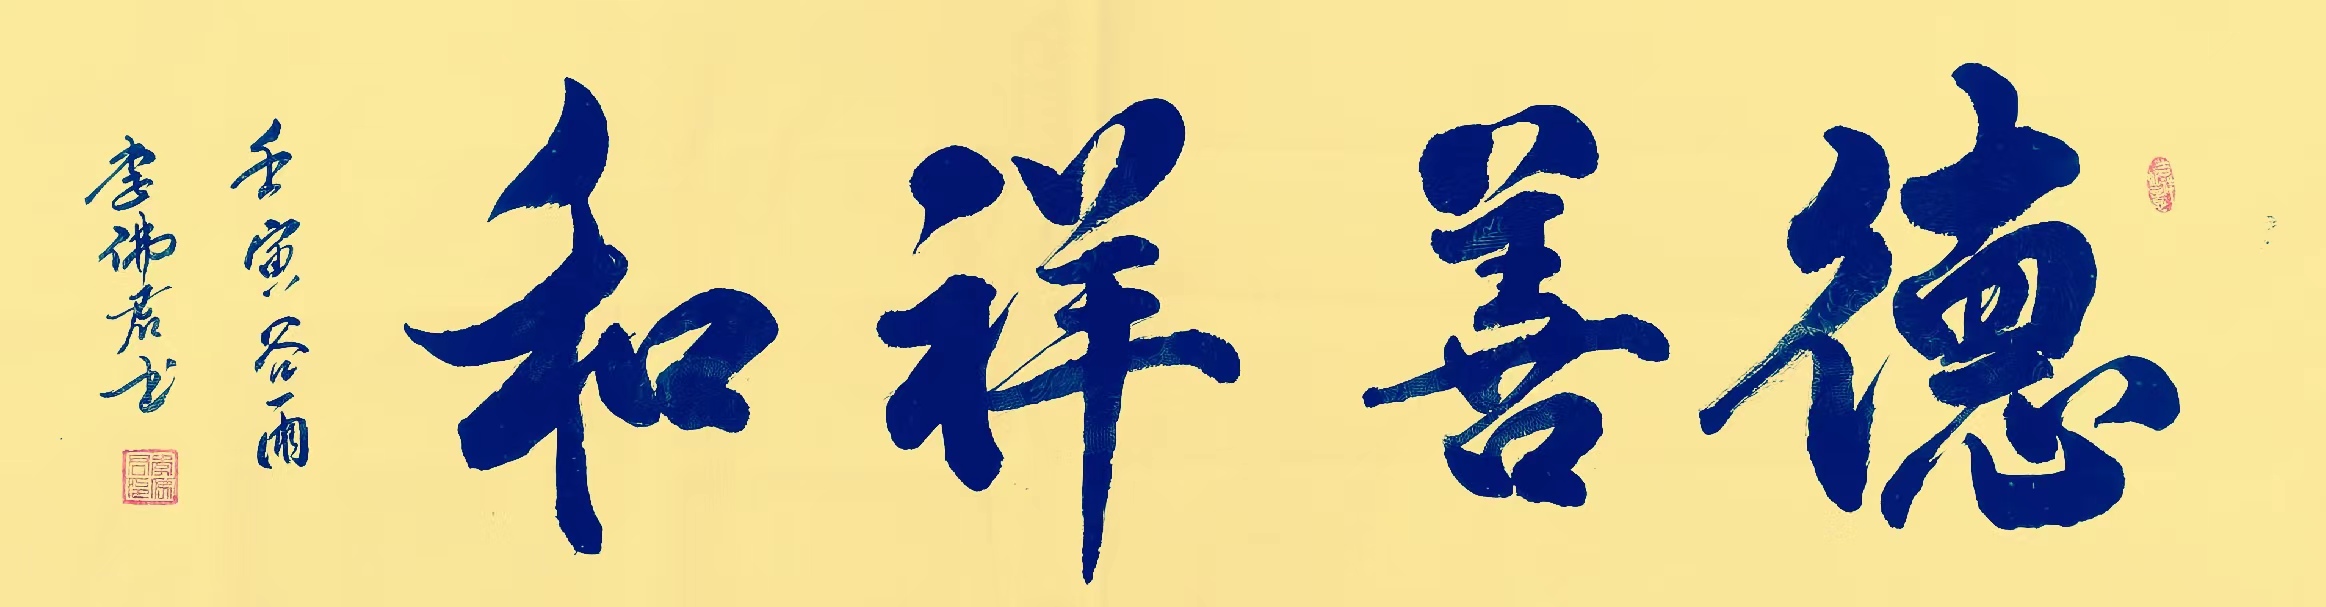 德善祥和
壬寅谷雨
李佛君书